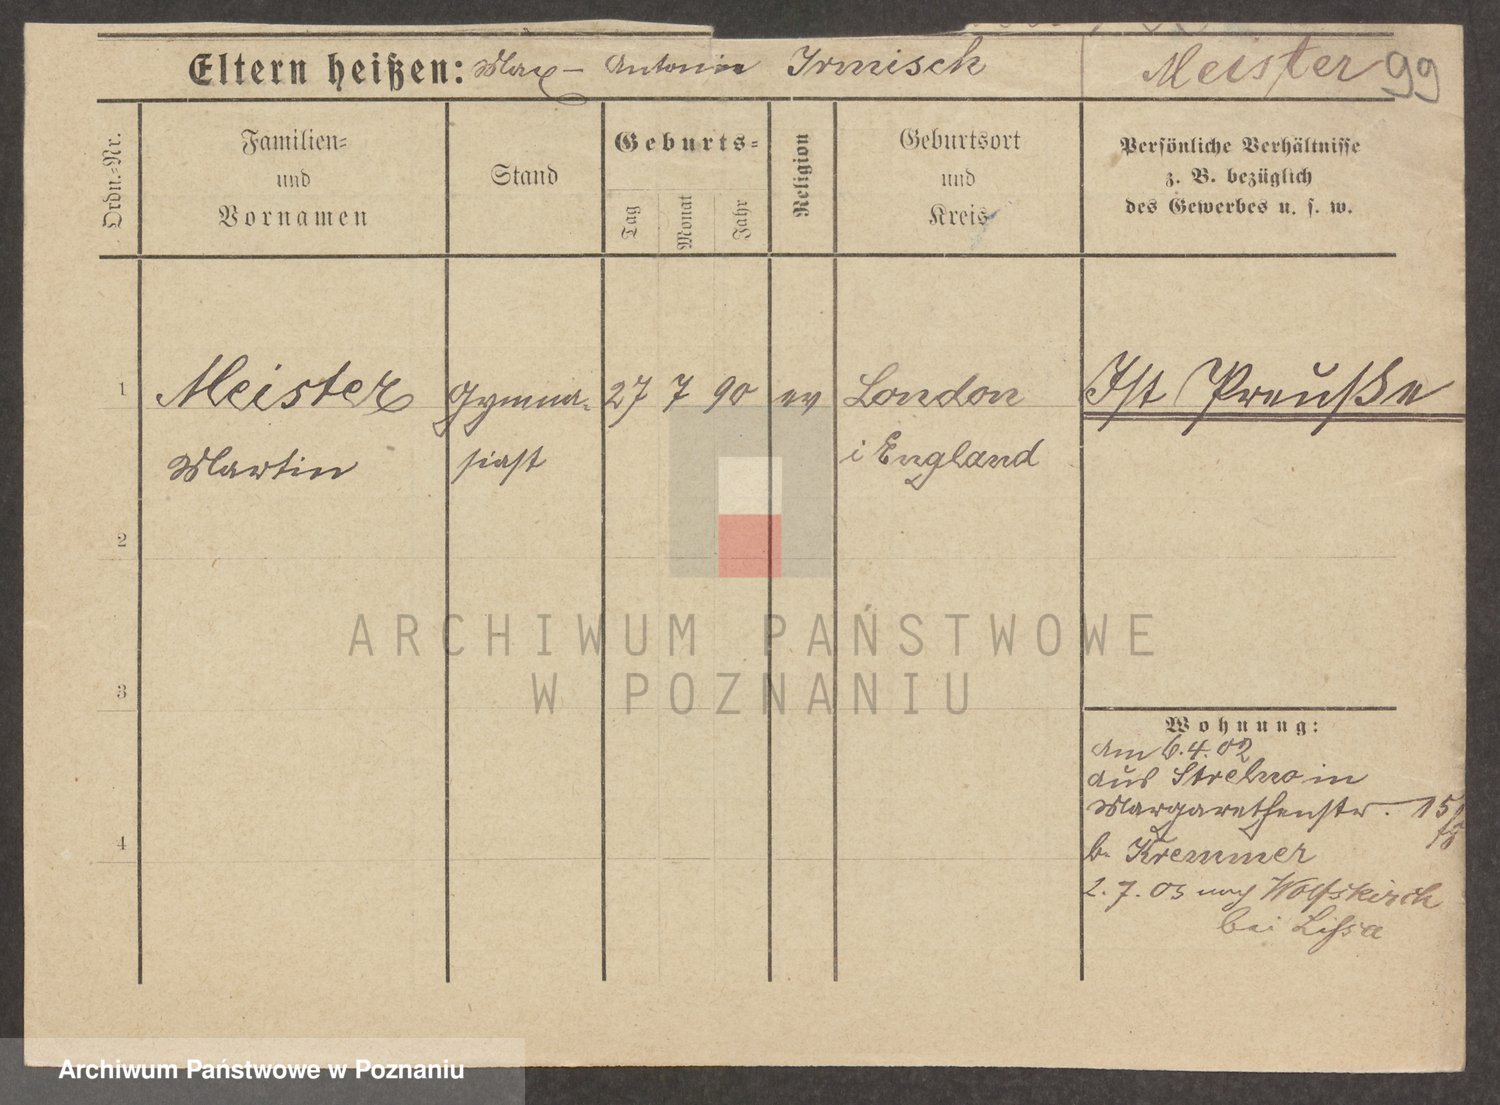 Eltern heißen: Max – Antonie Irmisch Meister 99
Ordn.-Nr.
Familien- und Vornamen
Stand
Geburts-
Tag
Monat
Jahr
Religion
Geburtsort und Kreis
Persönliche Verhältnisse
z. B. bezüglich
des Gewerbes u. s. w.
1 Meister Gymna- 27 7 90 ev London Ist Preuße
Martin siast i England
2
ARCHIWUM PAŃSTWOWE
W POZNANIU
3
Wohnung:
Am 6.4.02
aus Strelno in
Margarethenstr. 15
b. Kremmer
2.7.03 nach Wolfskirch
bei Lissa
4
Archiwum Państwowe w Poznaniu